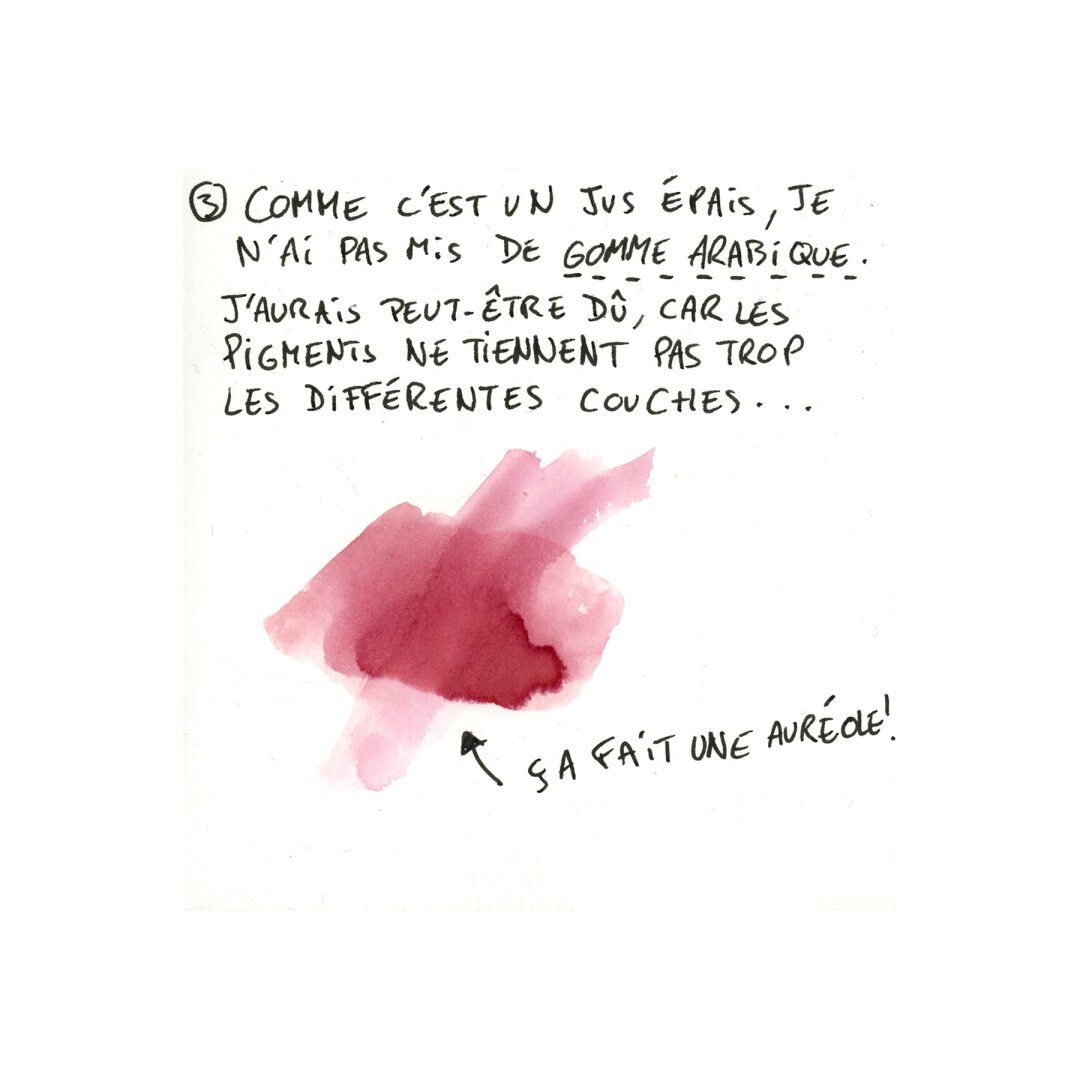 ③ COMME C'EST UN JUS ÉPAiS, JE
N'Ai PAS MiS DE GOMME ARABiQUE.
J'AURAiS PEUT-ÊTRE DÛ, CAR LES
PiGMENTS NE TiENNENT PAS TROP
LES DiFFÉRENTES COUCHES...
ÇA FAiT UNE AURÉOLE!